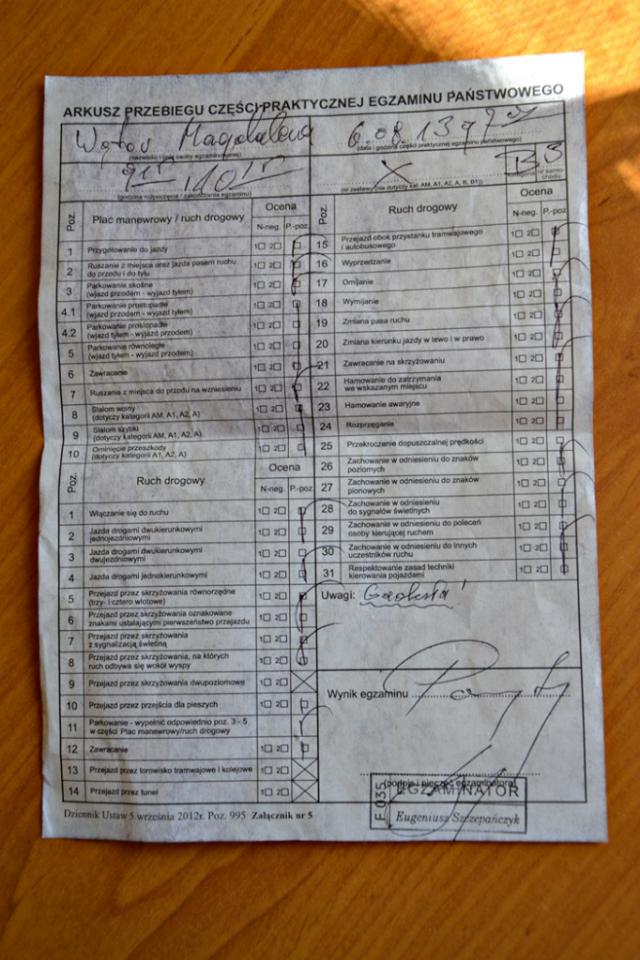 ARKUSZ PRZEBIEGU CZĘŚCI PRAKTYCZNEJ EGZAMINU PAŃSTWOWEGO
Magdalena
(nazwisko i imię osoby egzaminowanej)
6.08.13
(data i godzina części praktycznej egzaminu państwowego)
(godzina rozpoczęcia / zakończenia egzaminu)
B
Poz.
Plac manewrowy / ruch drogowy
Ocena
N-neg. P.-poz
1 Przygotowanie do jazdy 1 2
2 Ruszanie z miejsca oraz jazda pasem ruchu do przodu i do tyłu 1 2
3 Parkowanie skośne (wjazd przodem - wyjazd tyłem) 1 2
4.1 Parkowanie prostopadłe (wjazd przodem - wyjazd tyłem) 1 2
4.2 Parkowanie prostopadłe (wjazd tyłem - wyjazd przodem) 1 2
5 Parkowanie równoległe (wjazd tyłem - wyjazd przodem) 1 2
6 Zawracanie 1 2
7 Ruszanie z miejsca do przodu na wzniesieniu 1 2
8 Slalom wolny (dotyczy kategorii AM, A1, A2, A) 1 2
9 Slalom szybki (dotyczy kategorii AM, A1, A2, A) 1 2
10 Ominięcie przeszkody (dotyczy kategorii A1, A2, A) 1 2
Poz.
Ruch drogowy
Ocena
N-neg. P.-poz
1 Włączanie się do ruchu 1 2
2 Jazda drogami dwukierunkowymi jednojezdniowymi 1 2
3 Jazda drogami dwukierunkowymi dwujezdniowymi 1 2
4 Jazda drogami jednokierunkowymi 1 2
5 Przejazd przez skrzyżowania równorzędne (trzy- i cztero wlotowe) 1 2
6 Przejazd przez skrzyżowania oznakowane znakami ustalającymi pierwszeństwo przejazdu 1 2
7 Przejazd przez skrzyżowania z sygnalizacją świetlną 1 2
8 Przejazd przez skrzyżowania, na których ruch odbywa się wokół wyspy 1 2
9 Przejazd przez skrzyżowania dwupoziomowe 1 2
10 Przejazd przez przejścia dla pieszych 1 2
11 Parkowanie - wypełnić odpowiednio poz. 3 - 5 w części Plac manewrowy/ruch drogowy 1 2
12 Zawracanie 1 2
13 Przejazd przez torowisko tramwajowe i kolejowe 1 2
14 Przejazd przez tunel 1 2
Poz.
Ruch drogowy
Ocena
N-neg. P.-poz
15 Przejazd obok przystanku tramwajowego i autobusowego 1 2
16 Wyprzedzanie 1 2
17 Omijanie 1 2
18 Wymijanie 1 2
19 Zmiana pasa ruchu 1 2
20 Zmiana kierunku jazdy w lewo i w prawo 1 2
21 Zawracanie na skrzyżowaniu 1 2
22 Hamowanie do zatrzymania we wskazanym miejscu 1 2
23 Hamowanie awaryjne 1 2
24 Rozprzęganie 1 2
25 Przekroczenie dopuszczalnej prędkości 1 2
26 Zachowanie w odniesieniu do znaków poziomych 1 2
27 Zachowanie w odniesieniu do znaków pionowych 1 2
28 Zachowanie w odniesieniu do sygnałów świetlnych 1 2
29 Zachowanie w odniesieniu do poleceń osoby kierującej ruchem 1 2
30 Zachowanie w odniesieniu do innych uczestników ruchu 1 2
31 Respektowanie zasad techniki kierowania pojazdami 1 2
Uwagi:
Wynik egzaminu
(podpis i pieczęć egzaminatora)
EGZAMINATOR
Eugeniusz Szczepańczyk
E 035
Dziennik Ustaw 5 września 2012r. Poz. 995 Załącznik nr 5